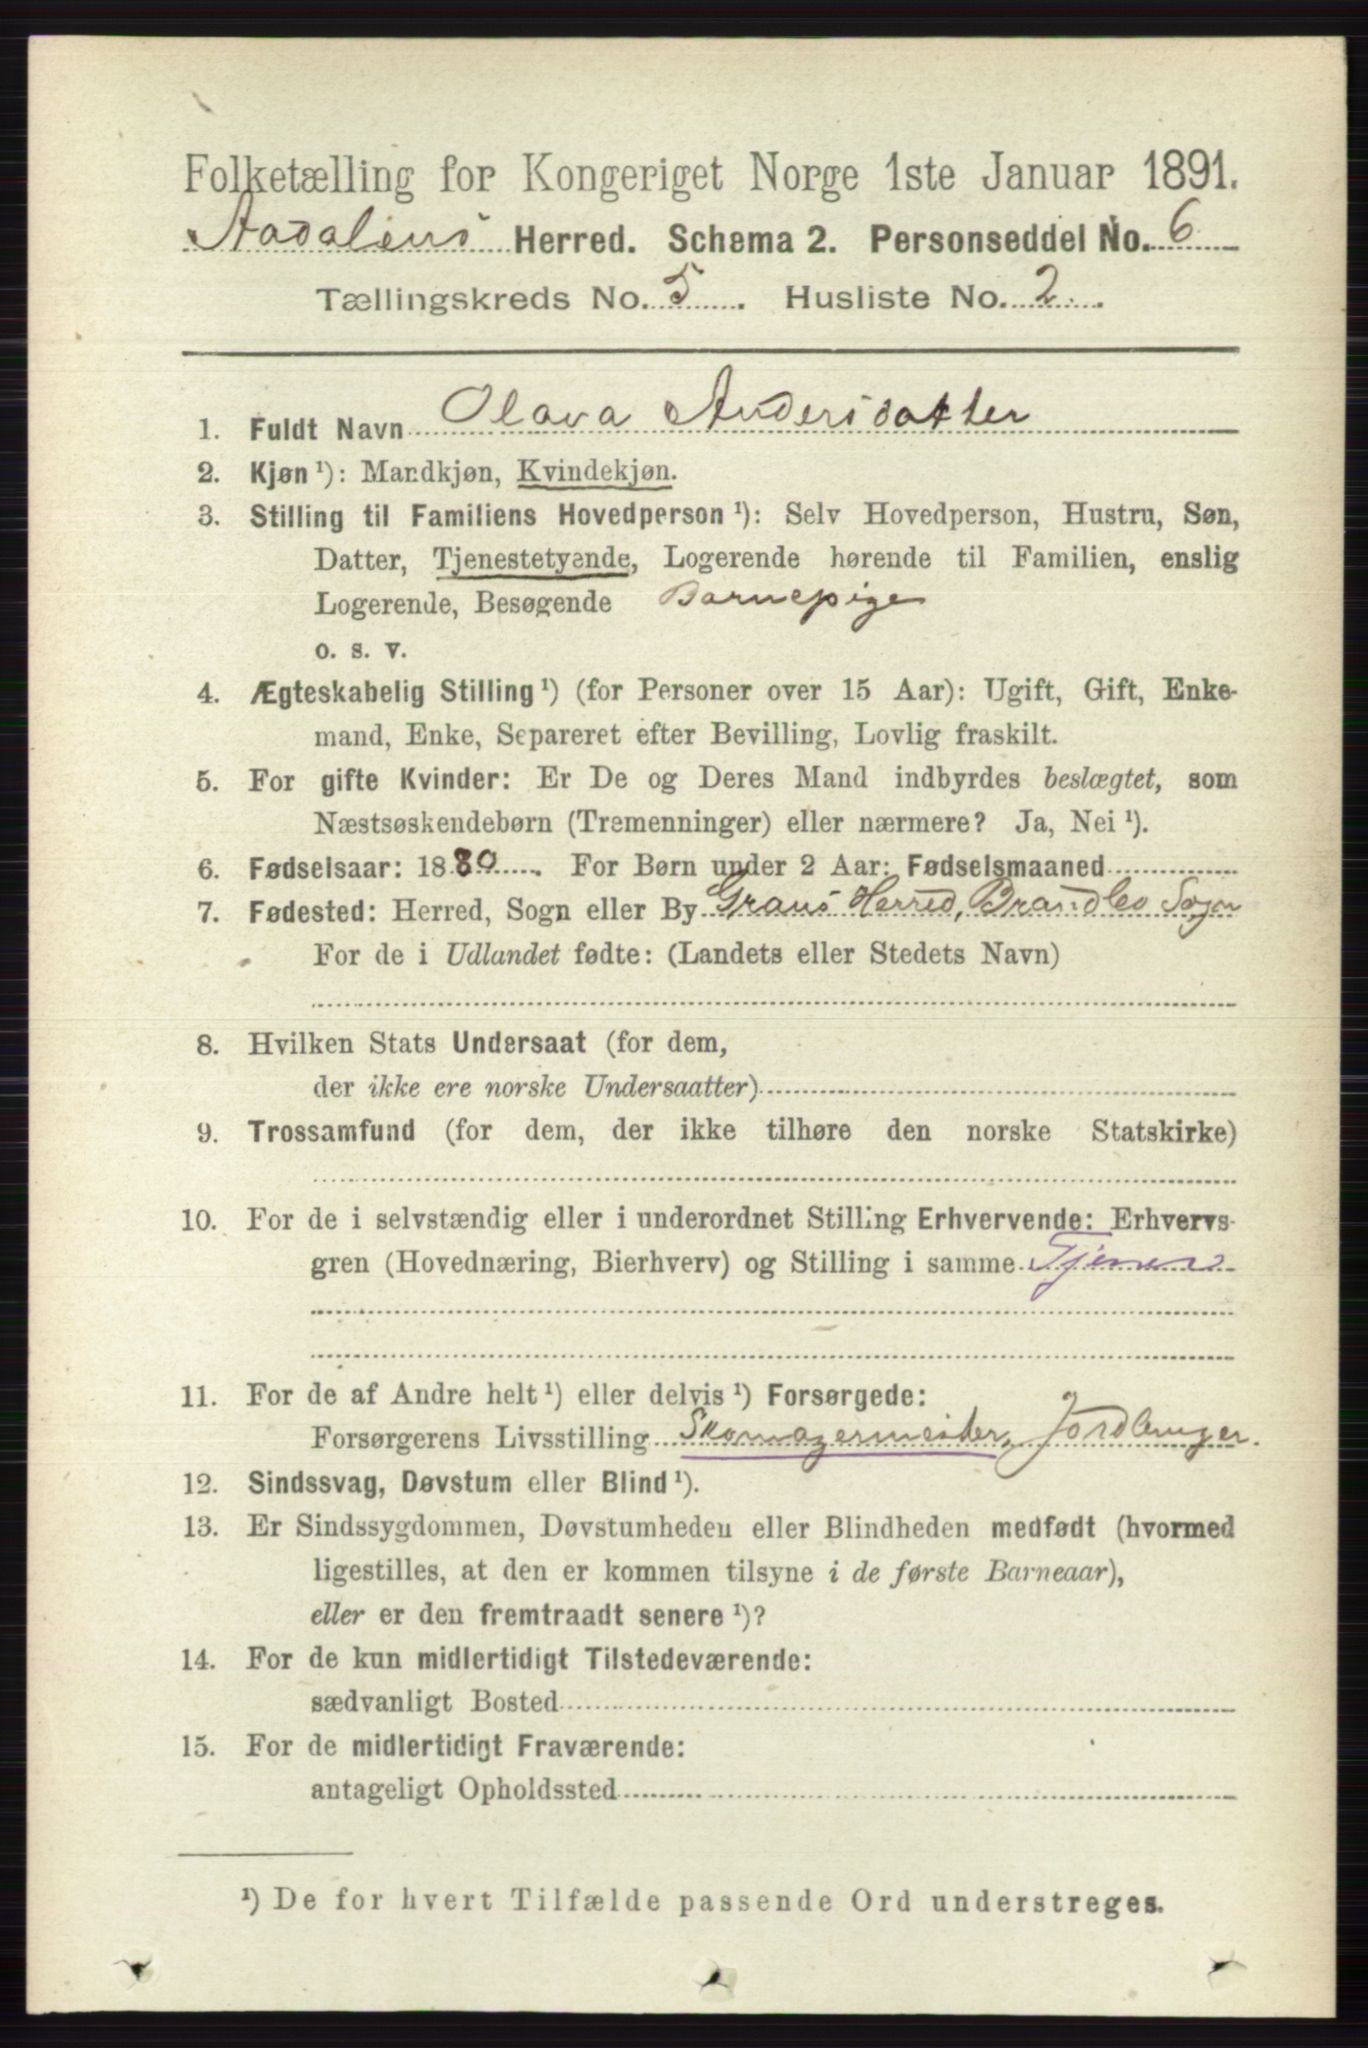 Folketælling for Kongeriget Norge 1ste Januar 1891.
Aadalens Herred. Schema 2. Personseddel No. 6
Tællingskreds No. 5. Husliste No. 2.
1. Fuldt Navn Olava Andersdatter
2. Kjøn ¹): Mandkjøn, Kvindekjøn.
3. Stilling til Familiens Hovedperson ¹): Selv Hovedperson, Hustru, Søn,
Datter, Tjenestetyende, Logerende hørende til Familien, enslig
Logerende, Besøgende Barnepige
o. s. v.
4. Ægteskabelig Stilling ¹) (for Personer over 15 Aar): Ugift, Gift, Enke-
mand, Enke, Separeret efter Bevilling, Lovlig fraskilt.
5. For gifte Kvinder: Er De og Deres Mand indbyrdes beslægtet, som
Næstsøskendebørn (Tremenninger) eller nærmere? Ja, Nei ¹).
6. Fødselsaar: 1880. For Børn under 2 Aar: Fødselsmaaned
7. Fødested: Herred, Sogn eller By Grans Herred, Brandbo Sogn
For de i Udlandet fødte: (Landets eller Stedets Navn)
8. Hvilken Stats Undersaat (for dem,
der ikke ere norske Undersaatter)
9. Trossamfund (for dem, der ikke tilhøre den norske Statskirke)
10. For de i selvstændig eller i underordnet Stilling Erhvervende: Erhvervs-
gren (Hovednæring, Bierhverv) og Stilling i samme Tjener
11. For de af Andre helt ¹) eller delvis ¹) Forsørgede:
Forsørgerens Livsstilling Skomagermester, Jordbruger.
12. Sindssvag, Døvstum eller Blind ¹).
13. Er Sindssygdommen, Døvstumheden eller Blindheden medfødt (hvormed
ligestilles, at den er kommen tilsyne i de første Barneaar),
eller er den fremtraadt senere ¹)?
14. For de kun midlertidigt Tilstedeværende:
sædvanligt Bosted
15. For de midlertidigt Fraværende:
antageligt Opholdssted
¹) De for hvert Tilfælde passende Ord understreges.